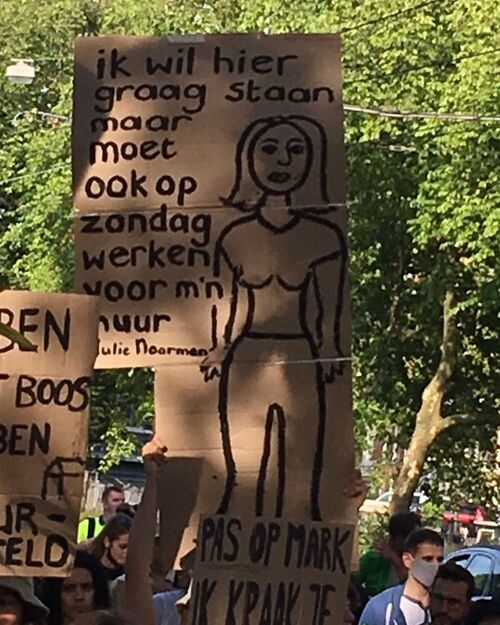 ik wil hier
graag staan
maar
moet
ook op
zondag
werken
voor m'n
huur
Julie Noorman
BEN
BOOS
BEN
UR-
ELD
PAS OP MARK
IK KRAAK JE